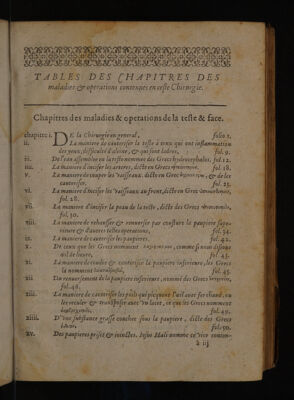 TABLES DES CHAPITRES DES
maladies & operations contenues en ceste Chirurgie.
Chapitres des maladies & operations de la teste & face.
chapitre i. DE la Chirurgie en general, folio 1.
ii. La maniere de cauteriser la teste à ceux qui ont inflammation
des yeux, difficulté d'alaine, & qui sont ladres, fol. 9.
iii. De l'eau assemblee en la teste nommee des Grecs hydrocephalos. fol. 12.
iiii. La maniere d'inciser les arteres, dicte en Grec fol. 18.
v. La maniere de couper les vaisseaux dicte en Grec & de les
cauteriser. fol. 23.
vi. La maniere d'inciser les vaisseaux au front, dicte en Grec
fol. 28.
vii. La maniere d'inciser la peau de la teste, dicte des Grecs
fol. 30.
viii. La maniere de rehausser & renverser par cousture la paupiere supe-
rieure & d'autres telles operations, fol. 34.
ix. La maniere de cauteriser les paupieres. fol. 42.
x. De ceux que les Grecs nomment comme si nous disions
œil de lieure, fol. 43.
xi. La maniere de coudre & cauteriser la paupiere inferieure, les Grecs
la nomment fol. 45.
xii. Du renversement de la paupiere inferieure, nommé des Grecs
fol. 46.
xiii. La maniere de cauteriser les poils qui picquent l'œil avec fer chaud, ou
les reculer & transposer avec un lacet, ce que les Grecs nomment
fol. 49.
xiiii. D'une substance grasse couchee sous la paupiere, dicte des Grecs
fol. 50.
xv. Des paupieres prises & joinctes.
à iij